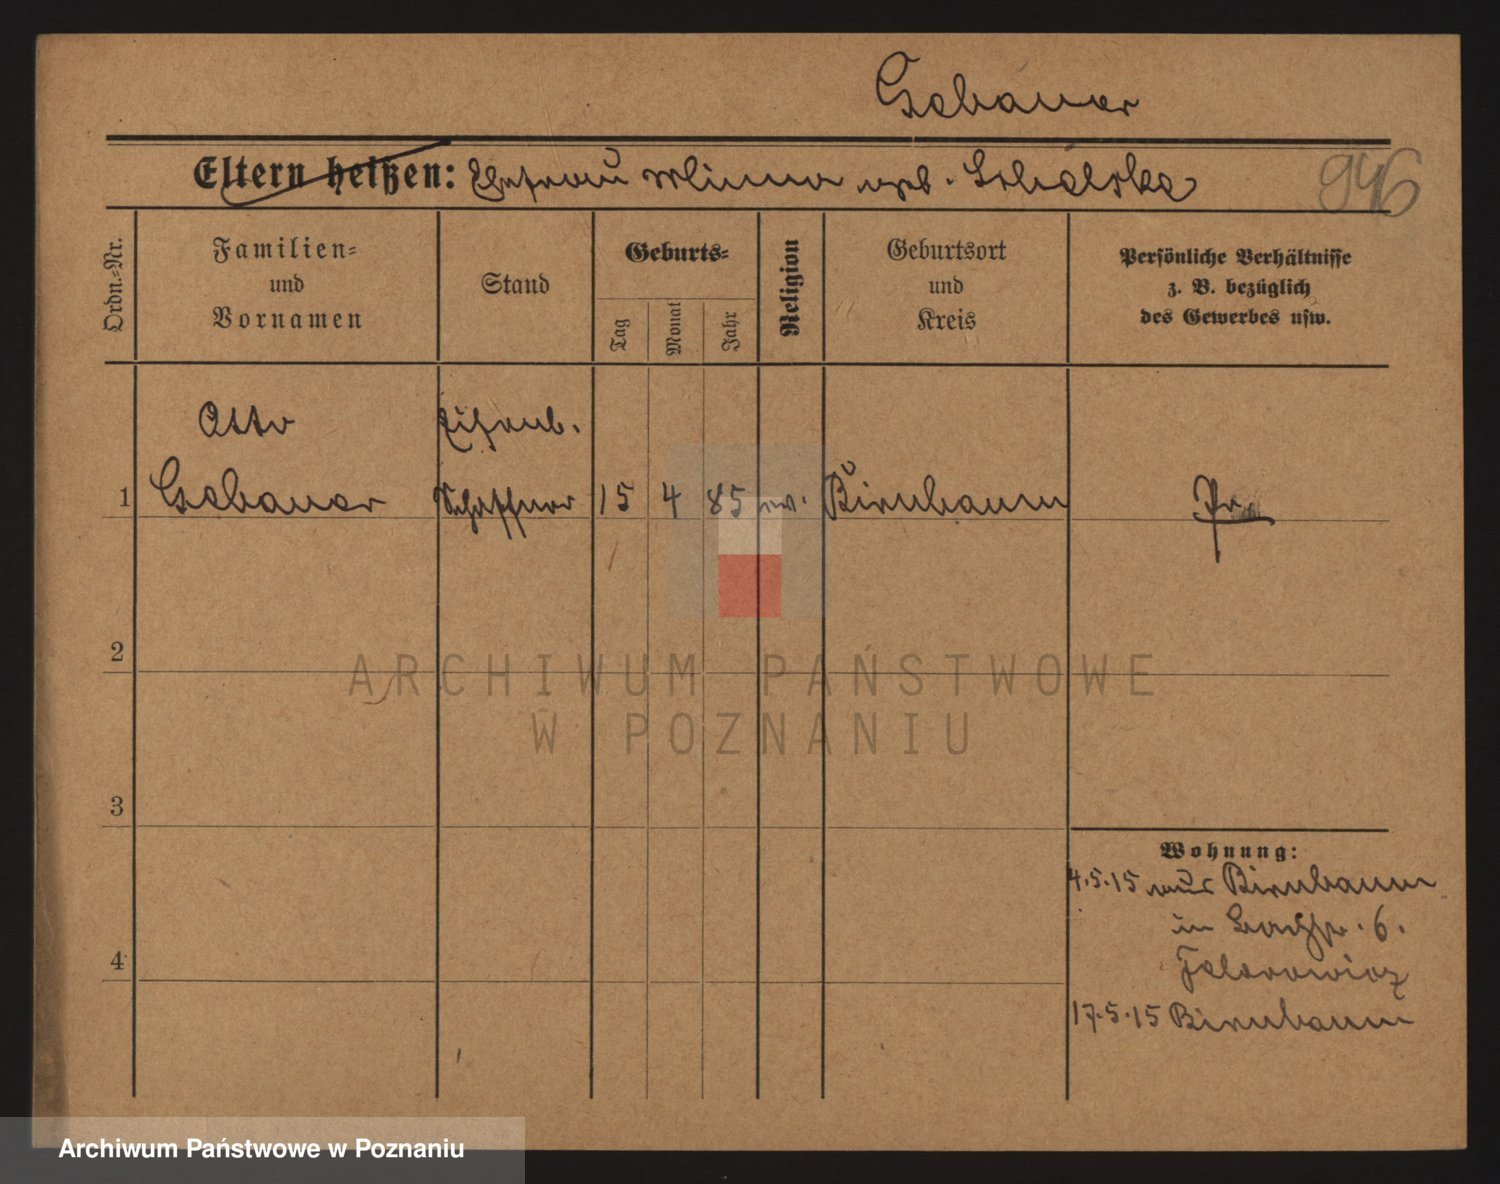 Gebauer
Eltern heißen: Ehefrau Minna geb. Schalska
946
Ordn.=Nr.
Familien=
und
Vornamen
Stand
Geburts=
Tag
Monat
Jahr
Religion
Geburtsort
und
Kreis
Persönliche Verhältnisse
z. B. bezüglich
des Gewerbes usw.
Otto Eisenb.
1 Gebauer Schaffner 15 4 85 ev. Birnbaum Pr
2
3
4
Wohnung:
4.5.15 aus Birnbaum
in 6.
17.5.15 Birnbaum
ARCHIWUM PAŃSTWOWE
W POZNANIU
Archiwum Państwowe w Poznaniu